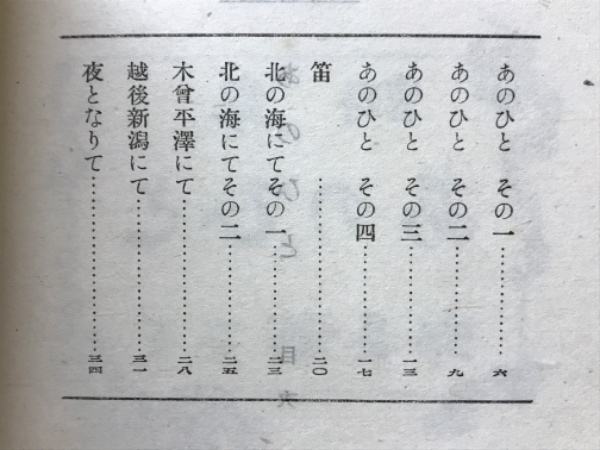 あのひと その一……………………六
あのひと その二……………………九
あのひと その三……………………一三
あのひと その四……………………一七
笛……………………二〇
北の海にてその一……………………二三
北の海にてその二……………………二五
木曾平澤にて……………………二八
越後新潟にて……………………三一
夜となりて……………………三四
あのひと
目次